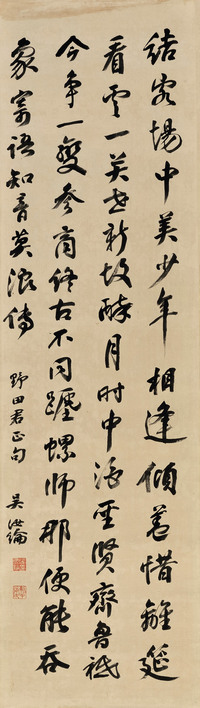 結客場中美少年相逢傾蓋惜離筵
看雲一笑無新故醉月時中酒聖賢齊魯祗
今爭一變參商終古不同躔螺師那便能吞
象寄語知音莫浪傳 野田君正句 吳汝綸